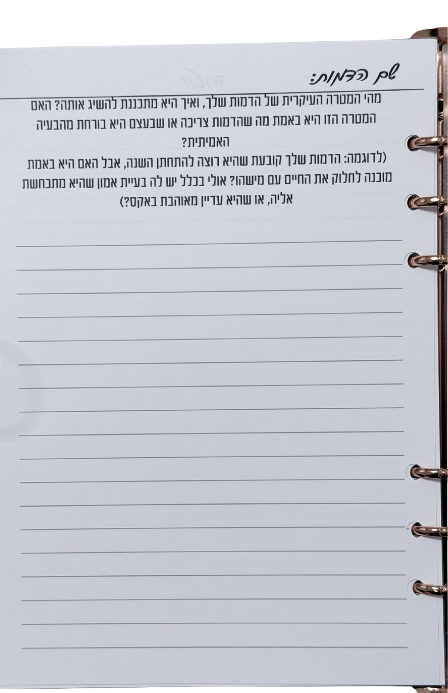 שם הדמות:
מהי המטרה העיקרית של הדמות שלך, ואיך היא מתכננת להשיג אותה? האם
המטרה הזו היא באמת מה שהדמות צריכה או שבעצם היא בורחת מהבעיה
האמיתית?
(לדוגמה: הדמות שלך קובעת שהיא רוצה להתחתן השנה, אבל האם היא באמת
מוכנה לחלוק את החיים עם מישהו? אולי בכלל יש לה בעיית אמון שהיא מתכחשת
אליה, או שהיא עדיין מאוהבת באקס?)